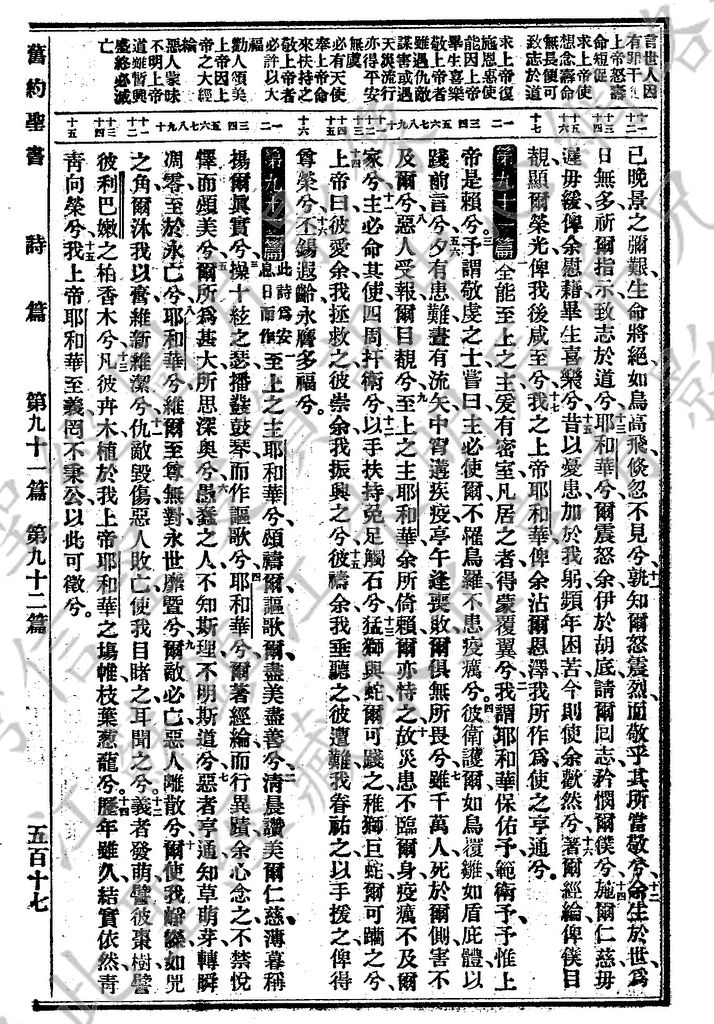 言世人因
有罪干
上帝怒壽
命短促
求上帝使
想念壽命
無長便可
致志於道
求上帝復
施恩惠使
能因上帝
畢生喜樂
敬上帝者
雖遇仇敵
謀害或遇
天災流行
亦得平安
無虞
必有天使
奉上帝命
來扶持之
敬上帝者
必許以大
福
勸人頌美
上帝因上
帝之大經
綸
惡人蒙昧
不明上帝
道雖暫興
盛終必滅
亡
已晚景之彌艱生命將絕如鳥高飛倏忽不見兮孰知爾怒震烈而敬乎其所當敬兮命生於世為
日無多祈爾指示致志於道兮耶和華兮爾震怒余伊於胡底請爾回志矜憫爾僕兮施爾仁慈毋
遲毋緩俾余慰藉畢生喜樂兮昔以憂患加於我躬頻年困苦今則使余歡然兮著爾經綸俾僕目
覩顯爾榮光俾我後咸至兮我之上帝耶和華俾余沾爾恩澤我所作為使之亨通兮。
第九十一篇 全能至上之主爰有密室凡居之者得蒙覆翼兮我謂耶和華保佑予範衛予予惟上
帝是賴兮。予謂敬虔之士嘗曰主必使爾不罹鳥羅不患疫癘兮。彼衛護爾如鳥覆雛如盾庇體以
踐前言兮夕有患難晝有流矢中宵遘疾疫亭午逢喪敗爾俱無所畏兮雖千萬人死於爾側害不
及爾兮惡人受報爾目覩兮至上之主耶和華余所倚賴爾亦恃之故災患不臨爾身疫癘不及爾
家兮主必命其使四周扞衛兮以手扶持免足觸石兮猛獅與蛇爾可踐之稚獅巨蛇爾可躪之兮
上帝曰彼愛余我拯救之彼崇余我振興之兮彼禱余我垂聽之彼遭難我眷祐之以手援之俾得
尊榮兮丕錫遐齡永膺多福兮。
第九十二篇 此詩為安息日而作 至上之主耶和華兮頌禱爾謳歌爾盡美盡善兮清晨讚美爾仁慈薄暮稱
揚爾眞實兮操十絃之瑟播鼗鼓琴而作謳歌兮耶和華兮爾著經綸而行異蹟余心念之不禁悅
懌而頌美兮爾所為甚大所思深奧兮愚蠢之人不知斯理不明斯道兮惡者亨通知草萌芽轉瞬
凋零至於永亡兮耶和華兮維爾至尊無對永世靡暨兮爾敵必亡惡人離散兮爾使我觺觺如兕
之角爾沐我以膏維新維潔兮仇敵毀傷惡人敗亡使我目睹之耳聞之兮義者發萌譬彼棗樹譬
彼利巴嫩之柏香木兮凡彼卉木植於我上帝耶和華之場帷枝葉葱蘢兮。歷年雖久結實依然青
青向榮兮我上帝耶和華至義罔不秉公以此可徵兮。
舊約聖書 詩篇 第九十一篇 第九十二篇 五百十七